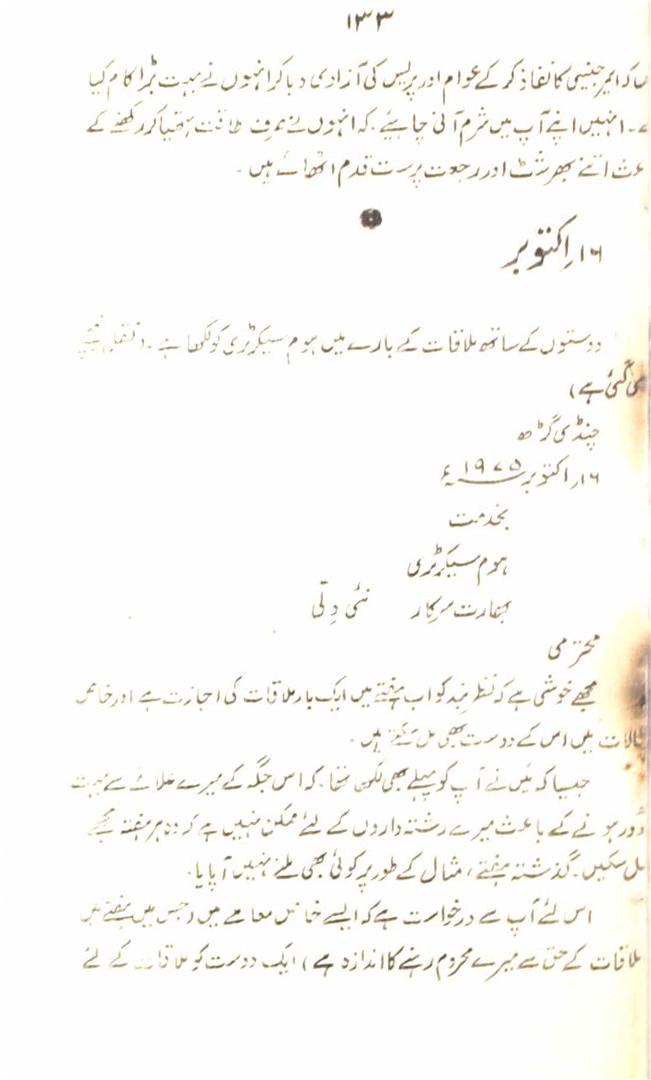 ۱۳۳
کہ ایمرجنسی کا نفاذ کر کے عوام اور پریس کی آزادی دبا کر انہوں نے بہت بڑا کام کیا
انہیں اپنے آپ میں شرم آنی چاہیئے۔ کہ انہوں نے صرف طاقت ہتھیا کر رکھنے کے
اتنے بھرشٹ اور رجعت پرست قدم اٹھائے ہیں۔
۱۶؍ اکتوبر
دوستوں کے ساتھ ملاقات کے بارے میں ہوم سیکرٹری کو لکھا ہے۔ (نقل نیچے
گئی ہے)
چنڈی گڑھ
۱۶؍ اکتوبر ۱۹۷۵ء
بخدمت
ہوم سیکرٹری
بھارت سرکار نئی دِلّی
محترمی
مجھے خوشی ہے کہ نظر بند کو اب ہفتے میں ایک بار ملاقات کی اجازت ہے اور خاص
حالات میں اس کے دوست بھی مل سکتے ہیں۔
جیسا کہ میں نے آپ کو پہلے بھی لکھا تھا۔ کہ اس جگہ کے میرے علاقے سے بہت
دُور ہونے کے باعث میرے رشتہ داروں کے لئے ممکن نہیں ہے کہ وہ ہر ہفتہ مجھے
مل سکیں۔ گذشتہ ہفتے، مثال کے طور پر کوئی بھی ملنے نہیں آ پایا۔
اس لئے آپ سے درخواست ہے کہ ایسے خاص معاملے میں (جس میں ہفتے میں
ملاقات کے حق سے میرے محروم رہنے کا اندازہ ہے) ایک دوست کو ملاقات کے لئے